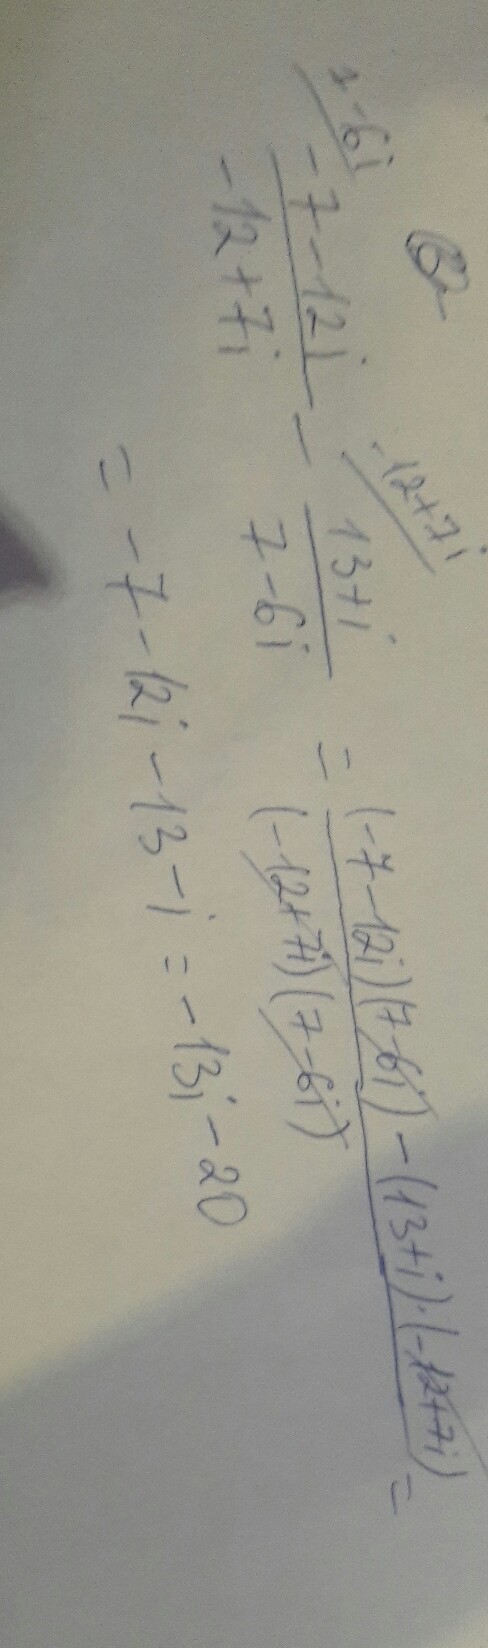 7-6i -12+7i
\frac{-7-12i}{-12+7i} - \frac{13+i}{7-6i} = \frac{(-7-12i)(7-6i)-(13+i)·(-12+7i)}{(-12+7i)(7-6i)} =
= -7-12i-13-i = -13i-20